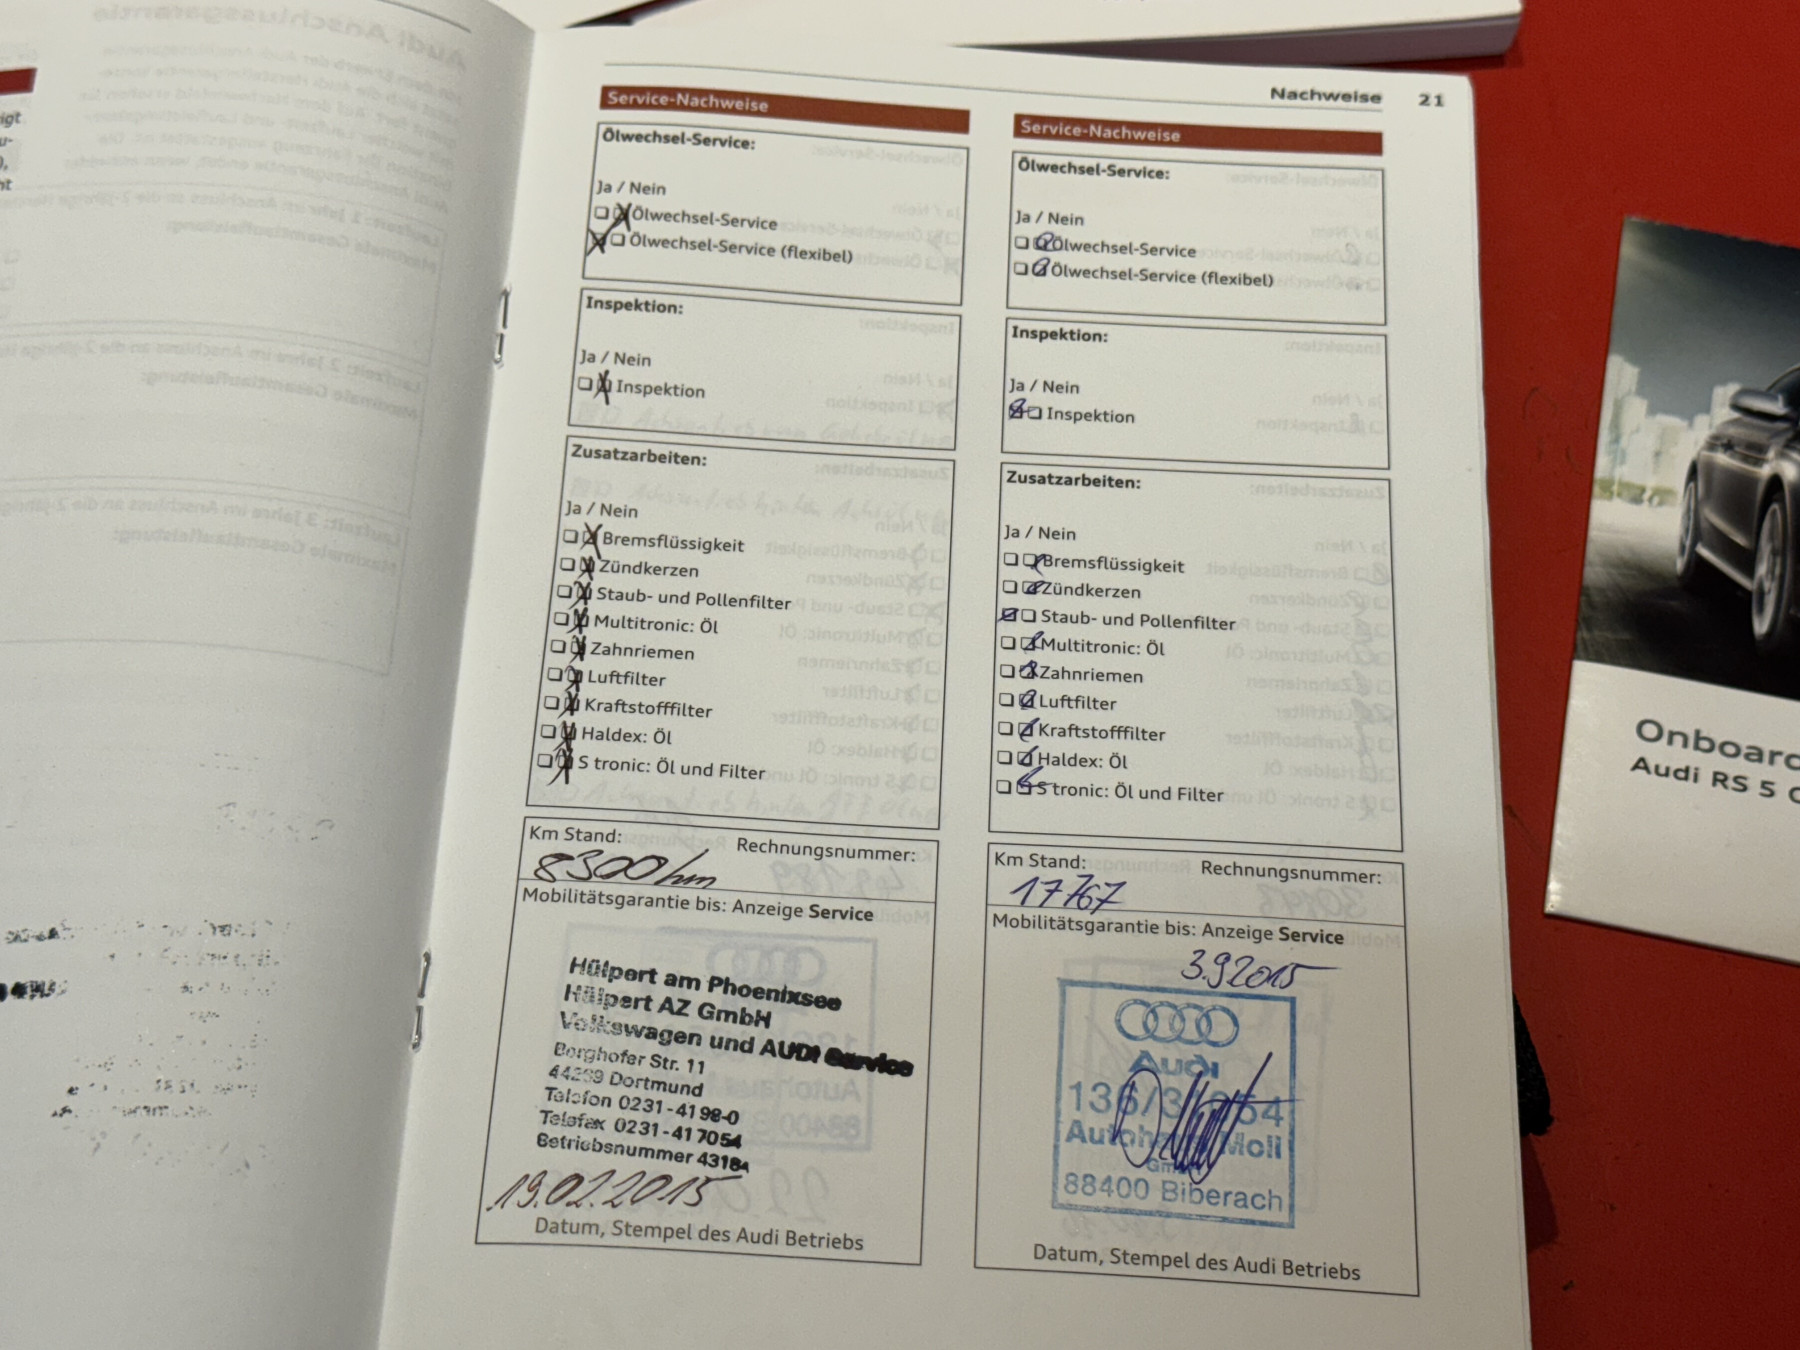 Nachweise 21
Service-Nachweise
Ölwechsel-Service:
Ja / Nein
Ölwechsel-Service
Ölwechsel-Service (flexibel)
Inspektion:
Ja / Nein
Inspektion
Zusatzarbeiten:
Ja / Nein
Bremsflüssigkeit
Zündkerzen
Staub- und Pollenfilter
Multitronic: Öl
Zahnriemen
Luftfilter
Kraftstofffilter
Haldex: Öl
S tronic: Öl und Filter
Km Stand:
Rechnungsnummer:
8300 km
Mobilitätsgarantie bis: Anzeige Service
Hülpert am Phoenixsee
Hülpert AZ GmbH
Volkswagen und AUDI Service
Berghofer Str. 11
44269 Dortmund
Telefon 0231-4198-0
Telefax 0231-417054
Betriebsnummer
19.02.2015
Datum, Stempel des Audi Betriebs
Service-Nachweise
Ölwechsel-Service:
Ja / Nein
Ölwechsel-Service
Ölwechsel-Service (flexibel)
Inspektion:
Ja / Nein
Inspektion
Zusatzarbeiten:
Ja / Nein
Bremsflüssigkeit
Zündkerzen
Staub- und Pollenfilter
Multitronic: Öl
Zahnriemen
Luftfilter
Kraftstofffilter
Haldex: Öl
S tronic: Öl und Filter
Km Stand:
Rechnungsnummer:
17767
Mobilitätsgarantie bis: Anzeige Service
3.9.2015
Audi
Autohaus Moll
GmbH
88400 Biberach
Datum, Stempel des Audi Betriebs
Onboard
Audi RS 5